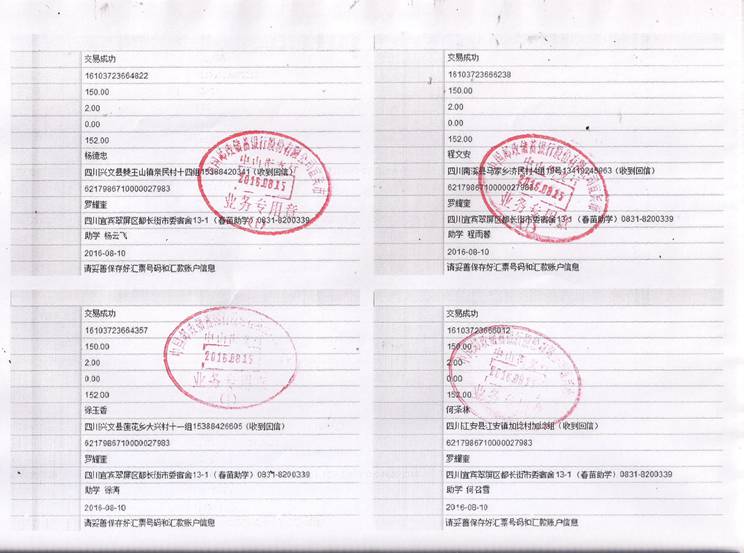 交易成功
16103723664822
150.00
2.00
0.00
152.00
杨德忠
四川兴文县僰王山镇荣民村十四组15388420341（收到回信）
6217986710000027983
罗耀奎
四川宜宾翠屏区都长街市委宿舍13-1（春苗助学）0831-8200339
助学 杨云飞
2016-08-10
请妥善保存好汇票号码和汇款账户信息
中国邮政储蓄银行股份有限公司
中山市
2016.08.15
业务专用章
(1)
交易成功
16103723666238
150.00
2.00
0.00
152.00
程文安
四川高县马家乡济民村4组19号13419245963（收到回信）
6217986710000027983
罗耀奎
四川宜宾翠屏区都长街市委宿舍13-1（春苗助学）0831-8200339
助学 程雨蓉
2016-08-10
请妥善保存好汇票号码和汇款账户信息
中国邮政储蓄银行股份有限公司
2016.08.15
业务专用章
交易成功
16103723664357
150.00
2.00
0.00
152.00
徐玉香
四川兴文县莲花乡大兴村十一组15388426605（收到回信）
6217986710000027983
罗耀奎
四川宜宾翠屏区都长街市委宿舍13-1（春苗助学）0831-8200339
助学 徐涛
2016-08-10
请妥善保存好汇票号码和汇款账户信息
2016.08.15
业务专用章
(1)
交易成功
16103723666012
150.00
2.00
0.00
152.00
何泽林
四川江安县江安镇加埝村加埝组（收到回信）
6217986710000027983
罗耀奎
四川宜宾翠屏区都长街市委宿舍13-1（春苗助学）0831-8200339
助学 何召雪
2016-08-10
请妥善保存好汇票号码和汇款账户信息
2016.08.15